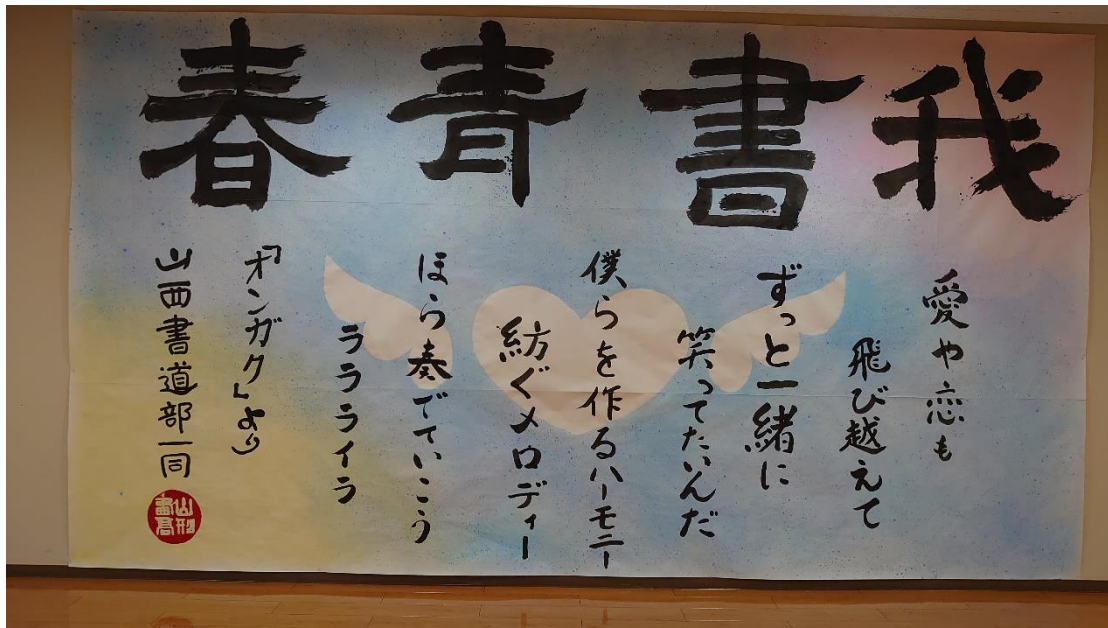 我書青春
愛や恋も
飛び越えて
ずっと一緒に
笑ってたいんだ
僕らを作るハーモニー
紡ぐメロディー
ほら奏でていこう
ララライラ
「オンガク」より
山西書道部一同